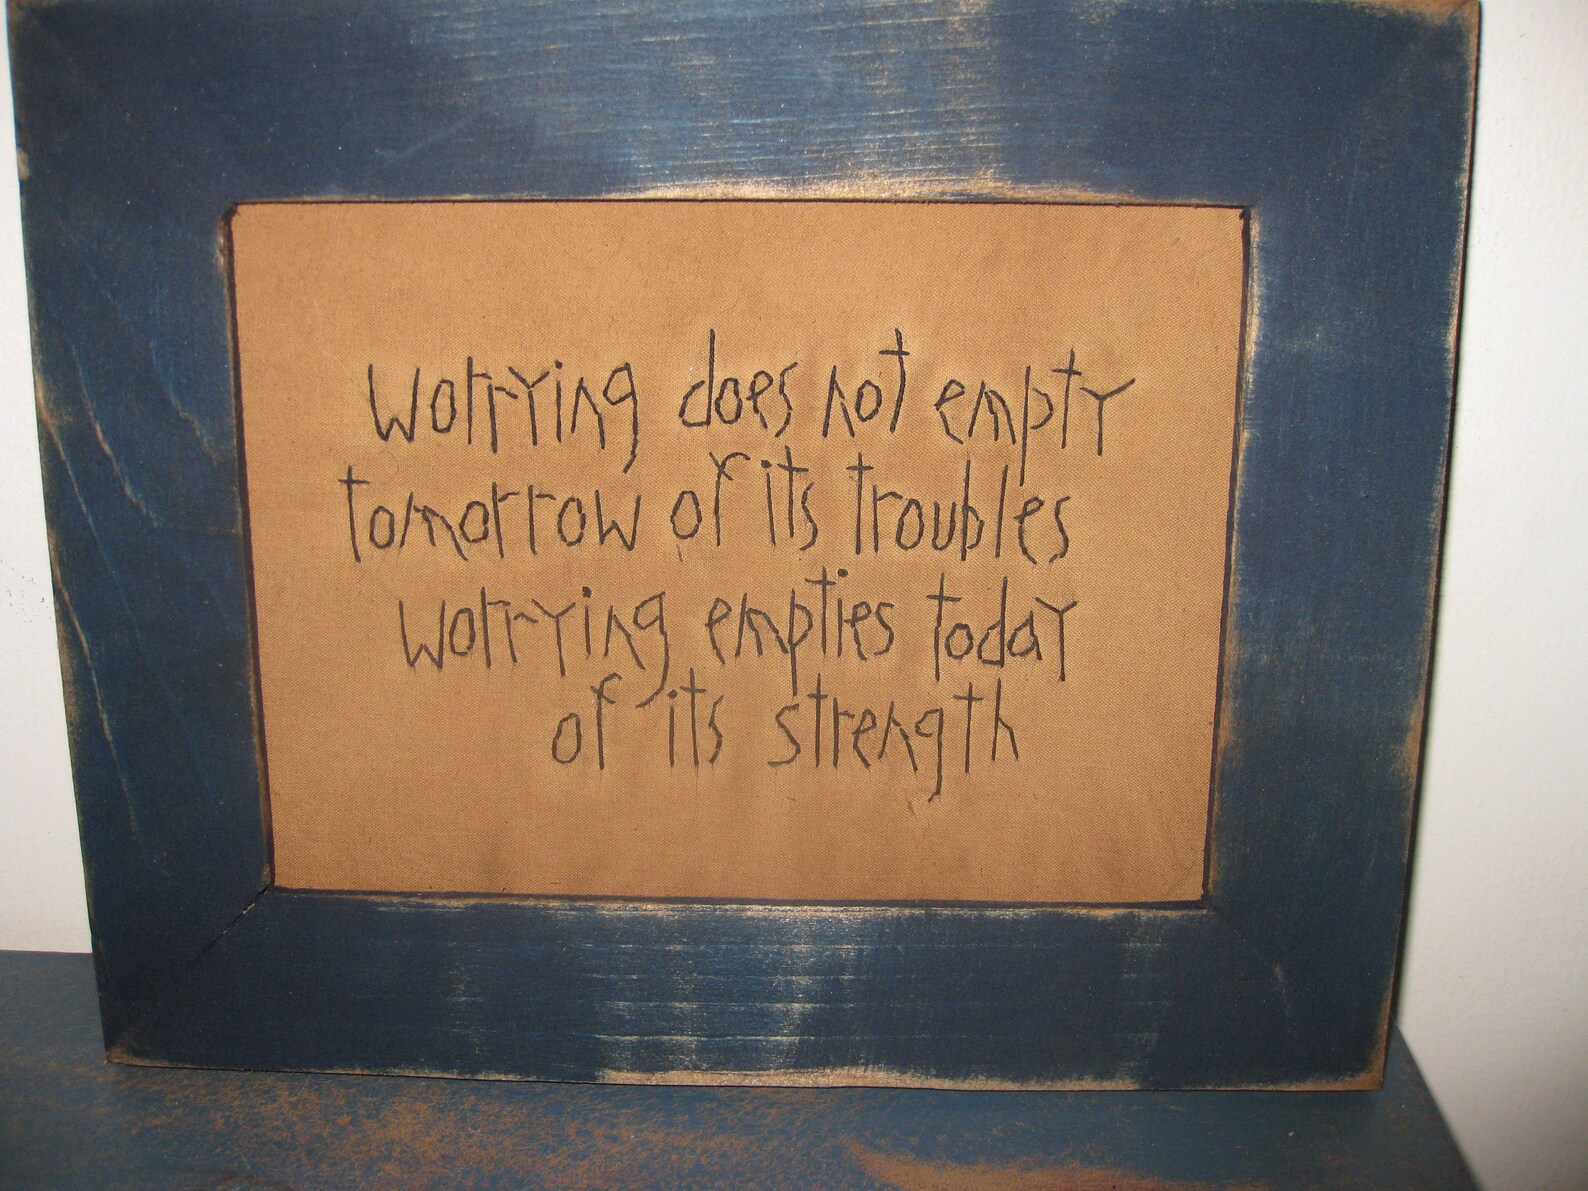 worrying does not empty
tomorrow of its troubles
worrying empties today
of its strength